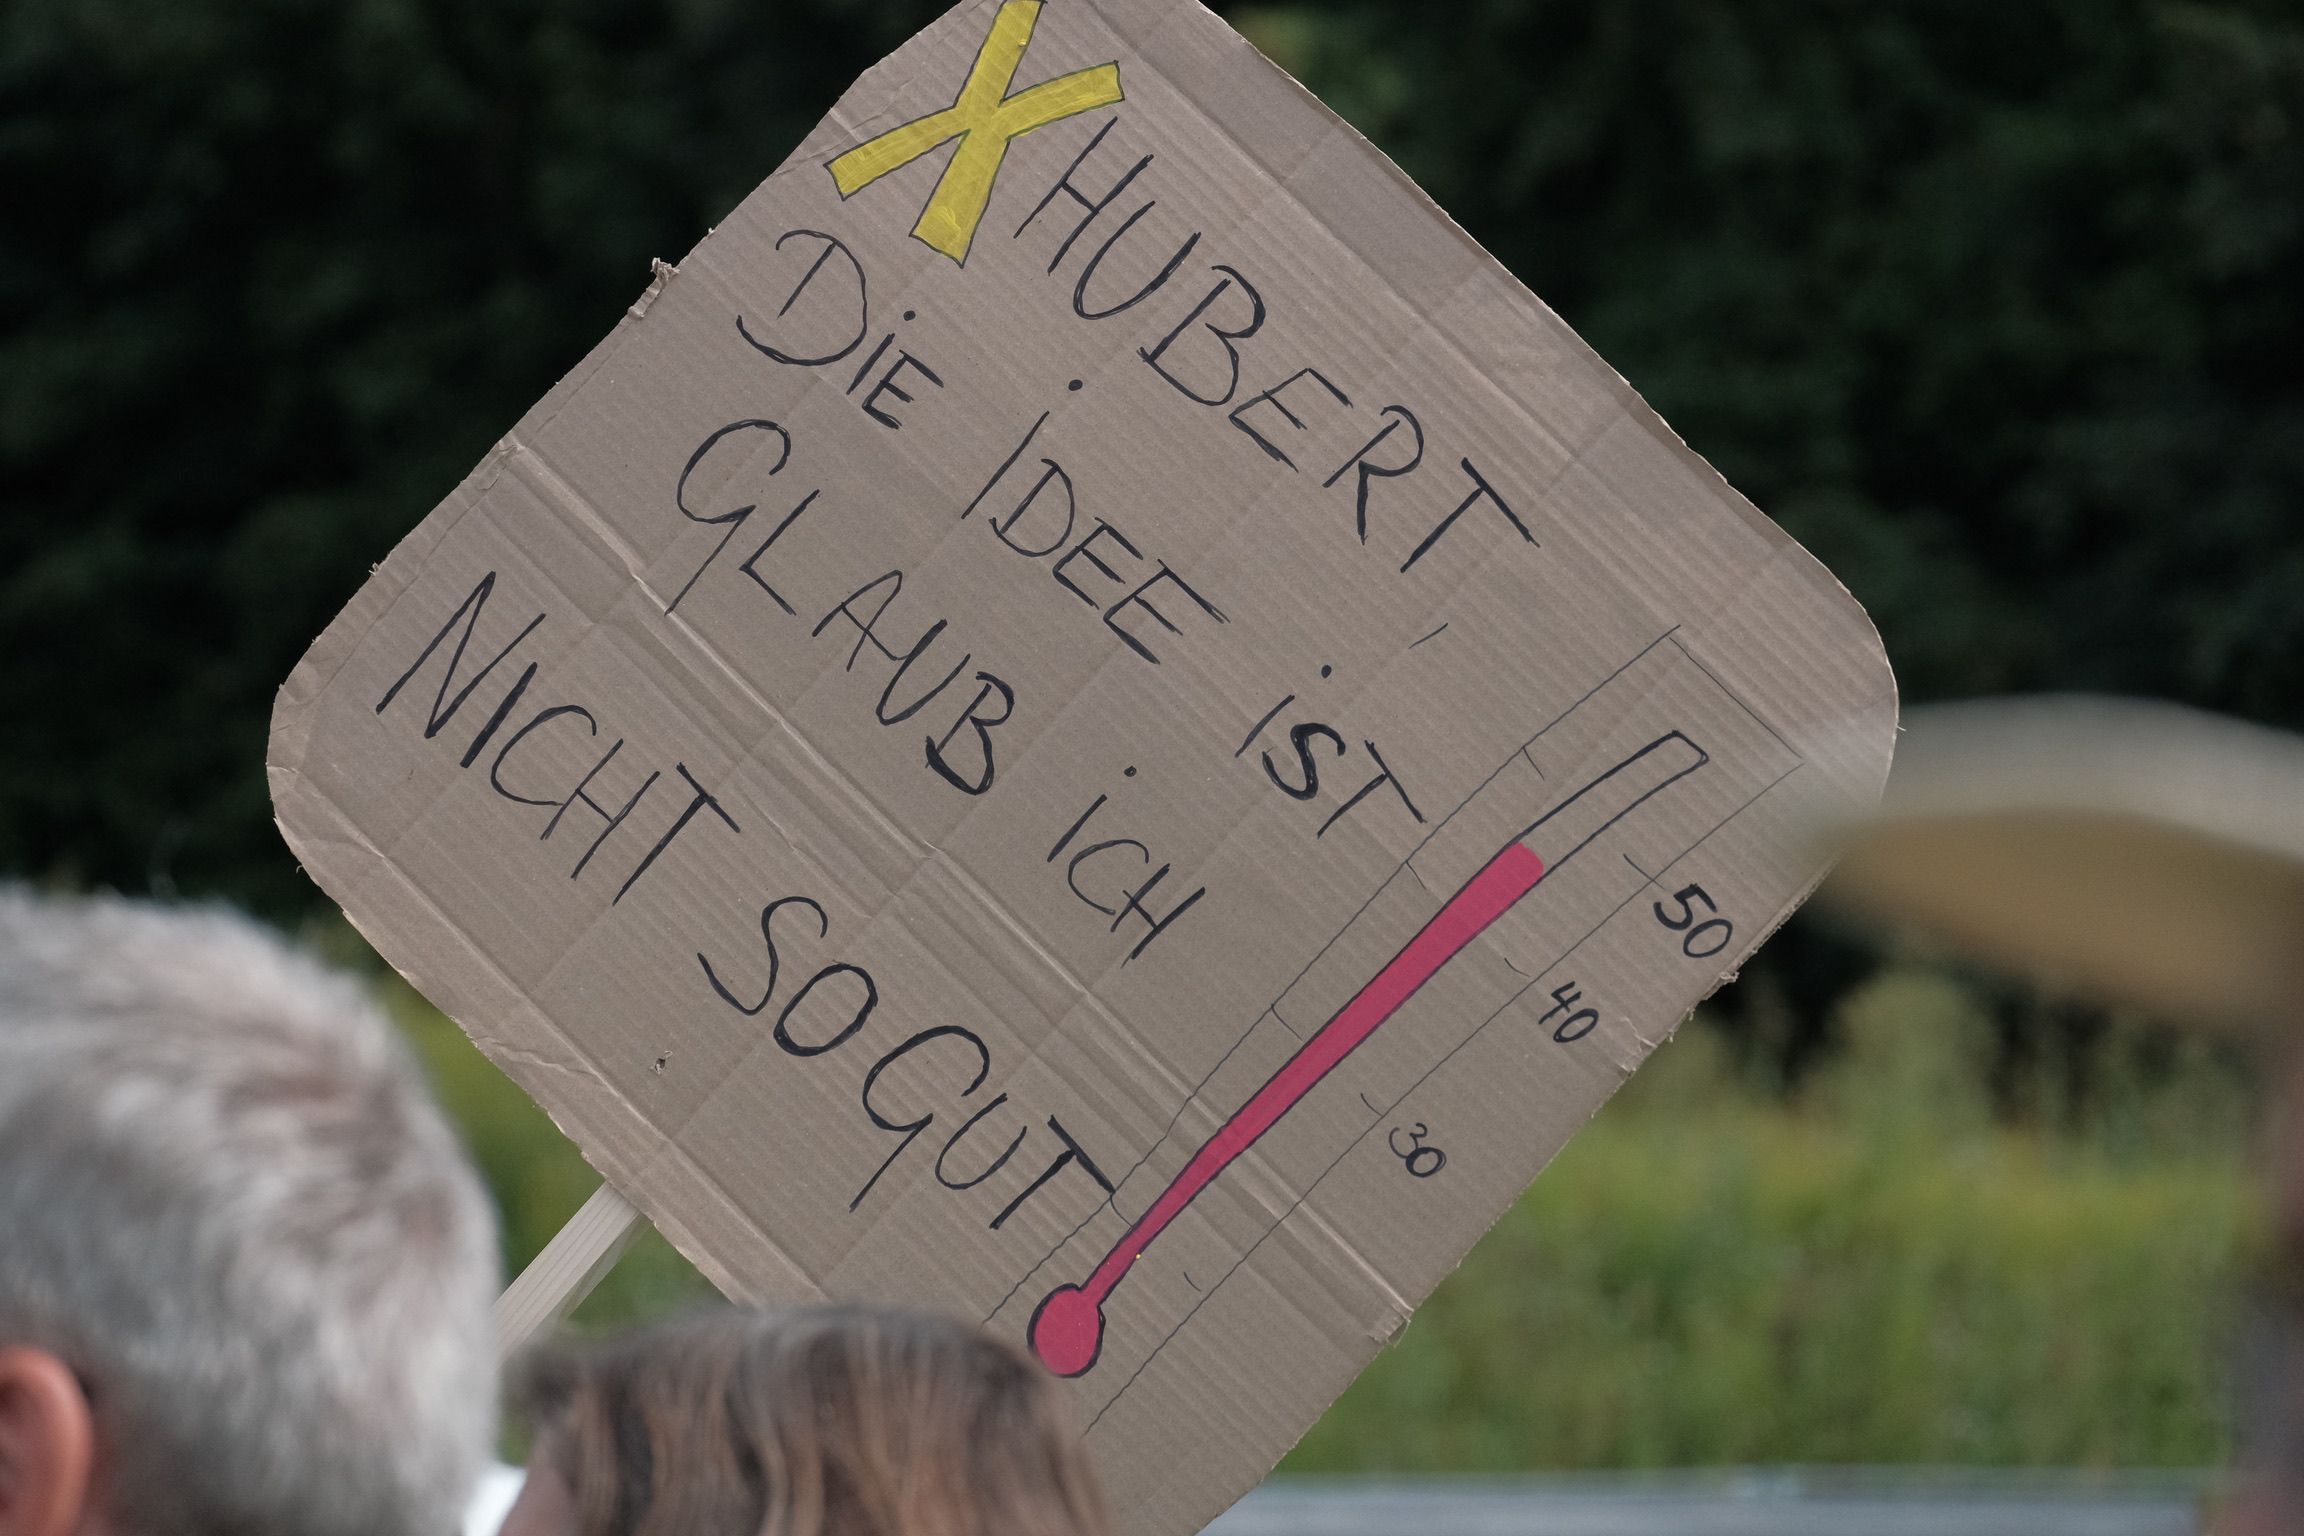 X HUBERT,
DIE IDEE IST
GLAUB ICH
NICHT SO GUT
50
40
30